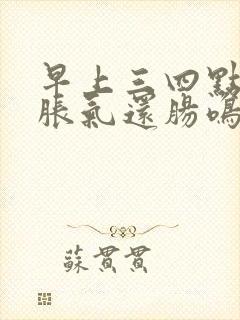 早上三四點
脹氣還腸鳴
蘇貫貫